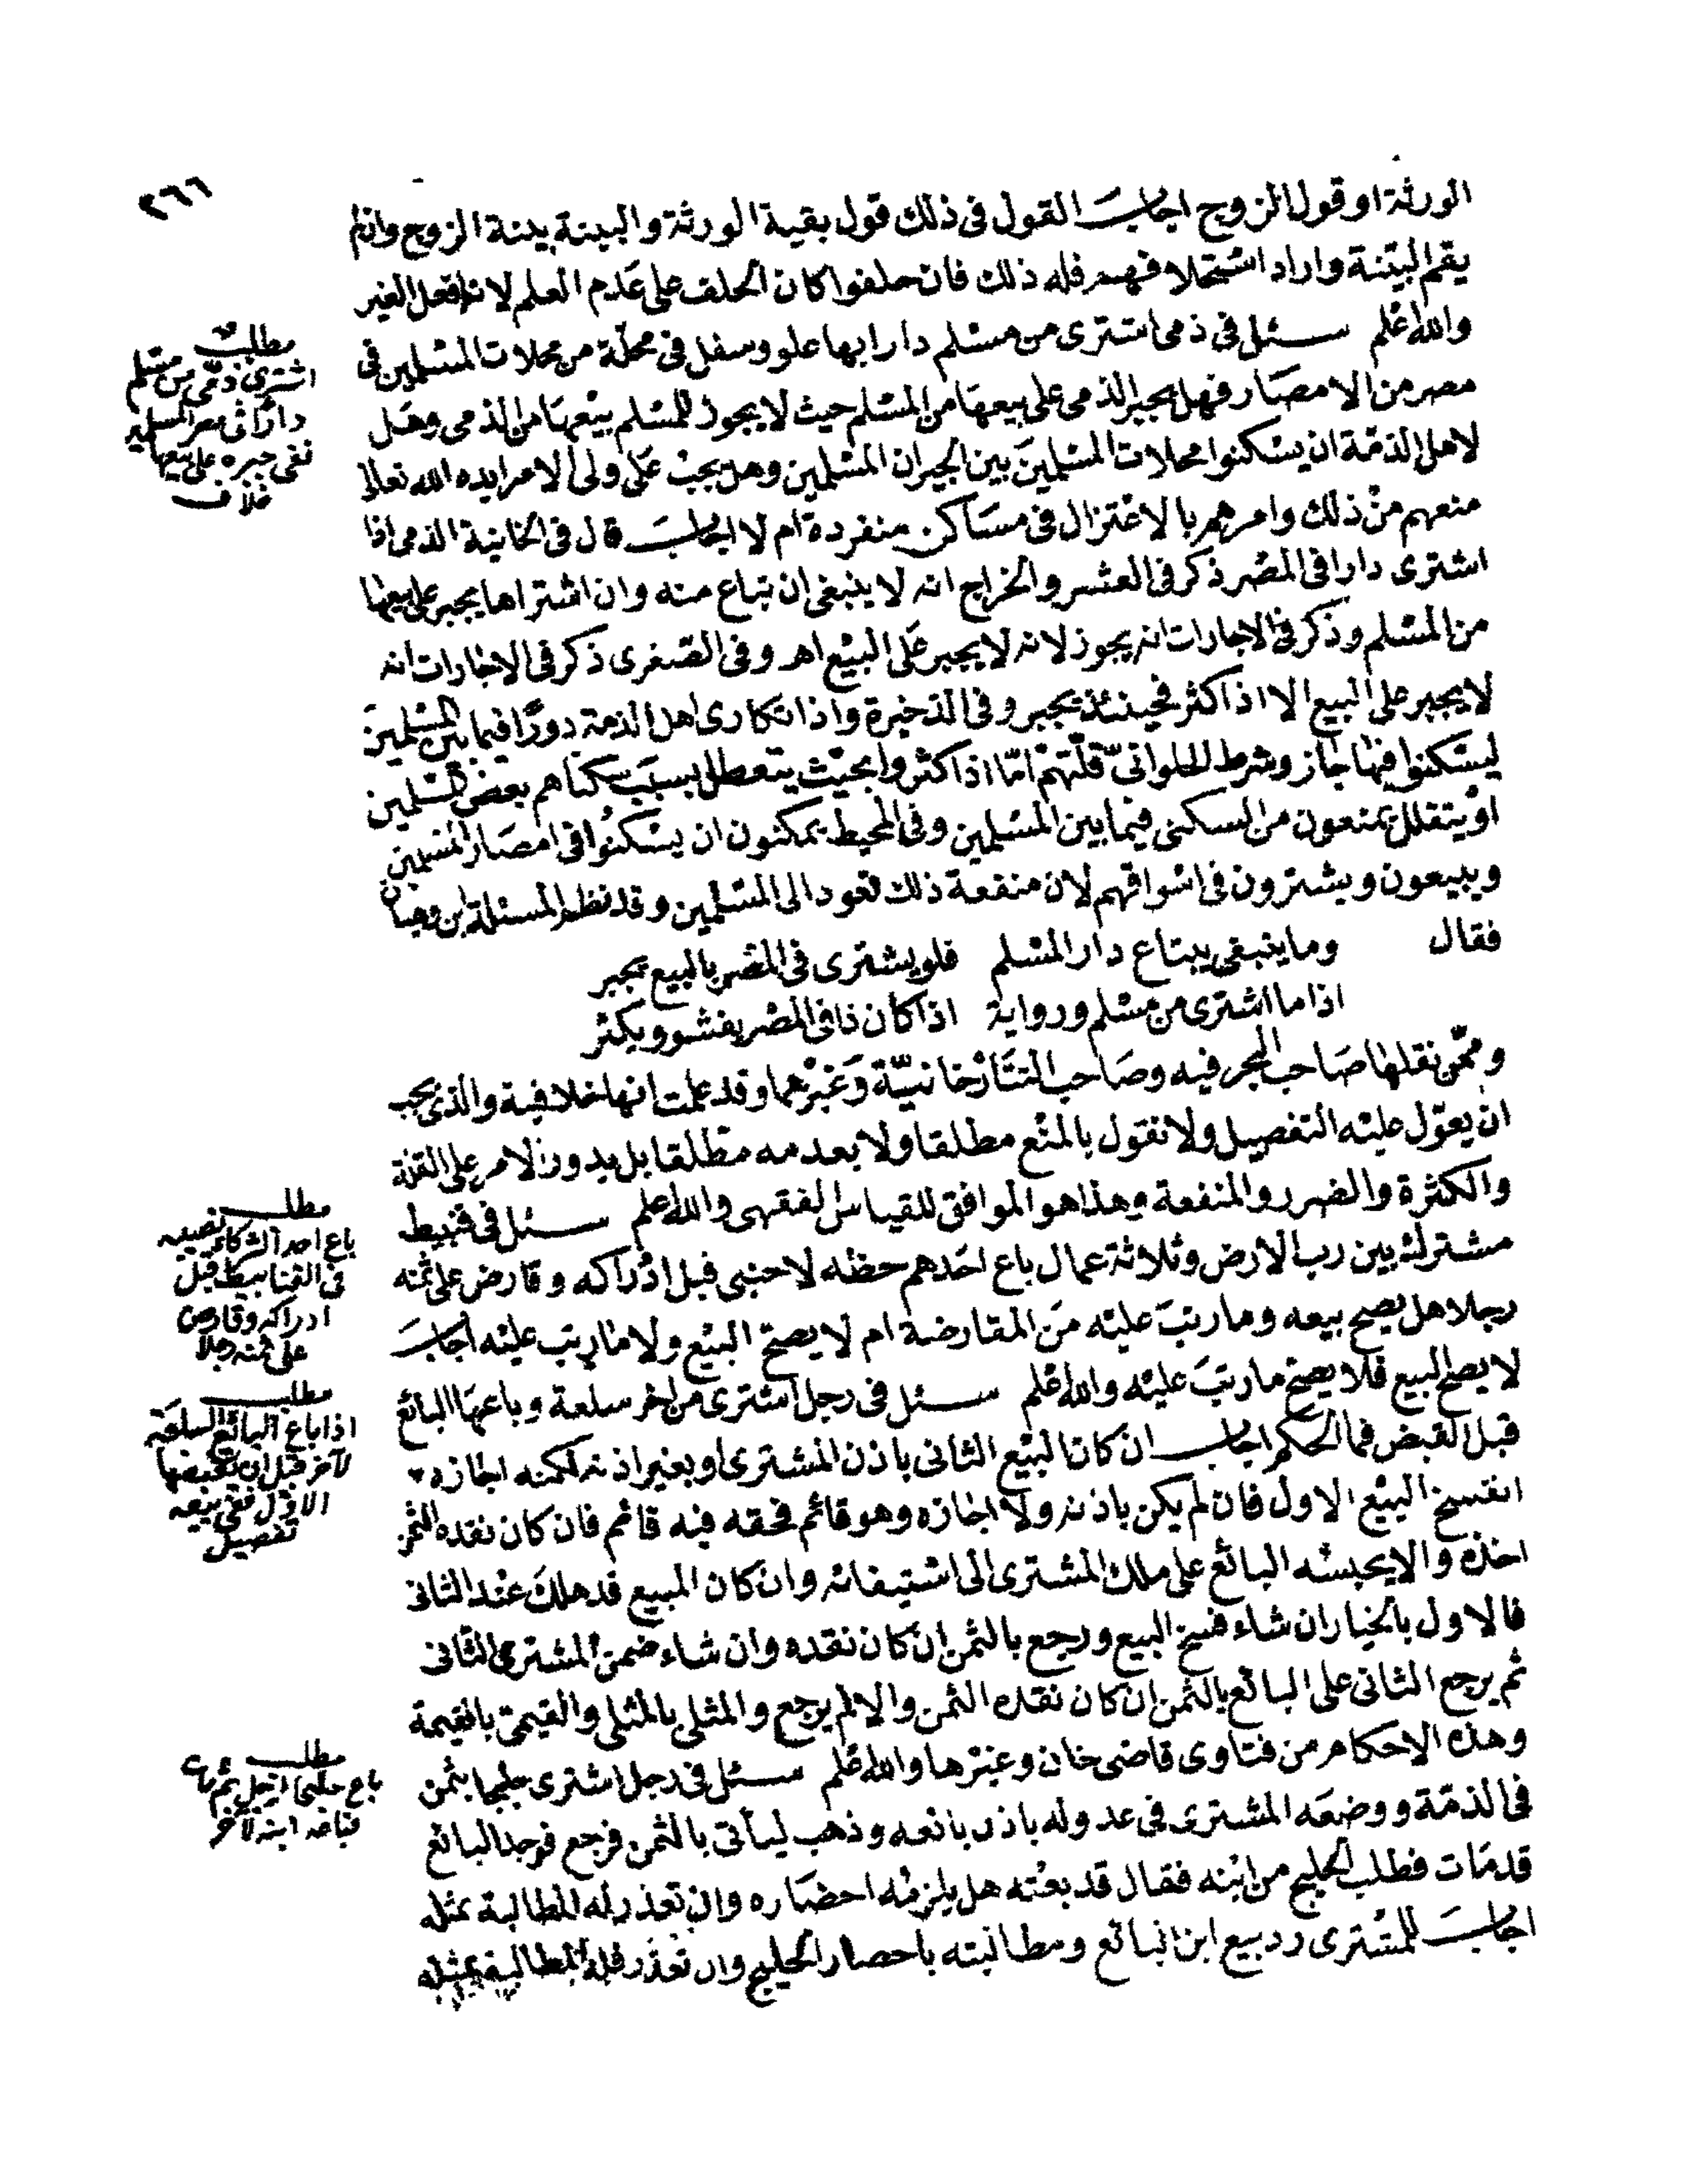 ٢٦٦
الورثة او قول الزوج اجاب القول فى ذلك قول بقية الورثة والبينة بينة الزوج وان لم
يقم البينة واراد استحلافهم فله ذلك فان حلفوا كان الحلف على عدم العلم لانه فعل الغير
والله اعلم سئل فى ذمى اشترى من مسلم دارا بها علو وسفل فى محلة من محلات المسلمين فى
مصر من الامصار فهل يجبر الذمى على بيعها من المسلم حيث لا يجوز للمسلم بيعها من الذمى وهل
لاهل الذمة ان يسكنوا محلات المسلمين بين الجيران المسلمين وهل يجب على ولى الامر ايده الله تعالى
منعهم من ذلك وامرهم بالاعتزال فى مساكن منفردة ام لا اجاب قال فى الخانية الذمى اذا
اشترى دارا فى المصر ذكر فى العشر والخراج انه لا ينبغى ان تباع منه وان اشتراها يجبر على بيعها
من المسلم وذكر فى الاجارات انه يجوز لانه لا يجبر على البيع اهـ وفى الصغرى ذكر فى الاجارات انه
لا يجبر على البيع الا اذا كثر فحينئذ يجبر وفى الذخيرة واذا تكارى اهل الذمة دورًا فيما بين المسلمين
ليسكنوا فيها جاز وشرط الحلوانىّ قلّتهم امّا اذا كثروا بحيث يتعطل بسبب سكناهم بعض المسلمين
او يتقلل يمنعون من السكنى فيما بين المسلمين وفى المحيط يمكنون ان يسكنوا فى امصار المسلمين
ويبيعون ويشترون فى اسواقهم لان منفعة ذلك تعود الى المسلمين وقد نظم المسئلة ابن وهبان
فقال وما ينبغى يبتاع دار المسلم فلو يشترى فى المصر بالبيع يجبر
اذا ما اشترى من مسلم ورواية اذا كان ذا فى المصر يفشو ويكثر
وممّن نقلها صاحب البحر فيه وصاحب التتارخانيّة وغيرهما وقد علمت انها خلافية والذى يجب
ان يعوّل عليه التفصيل ولا نقول بالمنع مطلقا ولا بعدمه مطلقا بل يدور الامر على القلة
والكثرة والضرر والمنفعة وهذا هو الموافق للقياس الفقهى والله اعلم سئل فى قنبيط
مشترك بين رب الارض وثلاثة عمال باع احدهم حظه لاجنبى قبل ادراكه وقارض على ثمنه
رجلا هل يصح بيعه وما رتب عليه من المقارضة ام لا يصح البيع ولا ما رتب عليه اجاب
لا يصح البيع فلا يصح ما رتب عليه والله اعلم سئل فى رجل اشترى من اخر سلعة وباعها البائع
قبل القبض فما الحكم اجاب ان كان البيع الثانى باذن المشترى او بغير اذنه لكنه اجازه
انفسخ البيع الاول فان لم يكن باذنه ولا اجازه وهو قائم فحقه فيه قائم فان كان نقده الثمن
اخذه والا يحبسه البائع على ملك المشترى الى استيفائه وان كان المبيع قد هلك عند الثانى
فالاول بالخيار ان شاء فسخ البيع ورجع بالثمن ان كان نقده وان شاء ضمن المشترى الثانى
ثم يرجع الثانى على البائع بالثمن ان كان نقده الثمن والا لم يرجع والمثلى بالمثلى والقيمى بالقيمة
وهذه الاحكام من فتاوى قاضى خان وغيرها والله اعلم سئل فى رجل اشترى حليجا بثمن
فى الذمّة ووضعه المشترى فى عدوله باذن بائعه وذهب ليأتى بالثمن فرجع فوجد البائع
قد مات فطلب الحليج من ابنه فقال قد بعته هل يلزمه احضاره وان تعذر له المطالبة بمثله
اجاب للمشترى رد بيع ابن البائع ومطالبته باحضار الحليج وان تعذر فله المطالبة بمثله
مطلب
اشترى ذمّى من مسلم
دارًا فى مصر المسلمين
ففى جبره على بيعها
خلاف
مطلب
باع احد الشركاء نصيبه
فى القنابيط قبل
ادراكه وقارض
على ثمنه رجلا
مطلب
اذا باع البائع السلعة
لآخر قبل ان يقبضها
الاوّل ففى بيعه
تفصيل
مطلب
باع حليجا لرجل ثم مات
فباعه ابنه لآخر